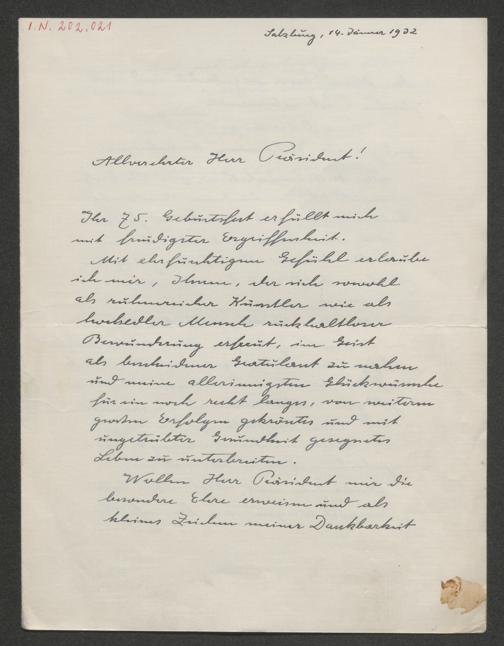 I.N. 202.021
Salzburg, 14. Jänner 1932
Allverehrter Herr Präsident!
Ihr 75. Geburtsfest erfüllt mich
mit freudigster Ergriffenheit.
Mit ehrfürchtigem Gefühl erlaube
ich mir, Ihnen, der sich sowohl
als ruhmreicher Künstler wie als
hochedler Mensch rückhaltloser
Bewunderung erfreut, im Geist
als bescheidener Gratulant zu nahen
und meine allerinnigsten Glückwünsche
für ein noch recht langes, von weiteren
großen Erfolgen gekröntes und mit
ungetrübter Gesundheit gesegnetes
Leben zu unterbreiten.
Wollen Herr Präsident mir die
besondere Ehre erweisen und als
kleines Zeichen meiner Dankbarkeit